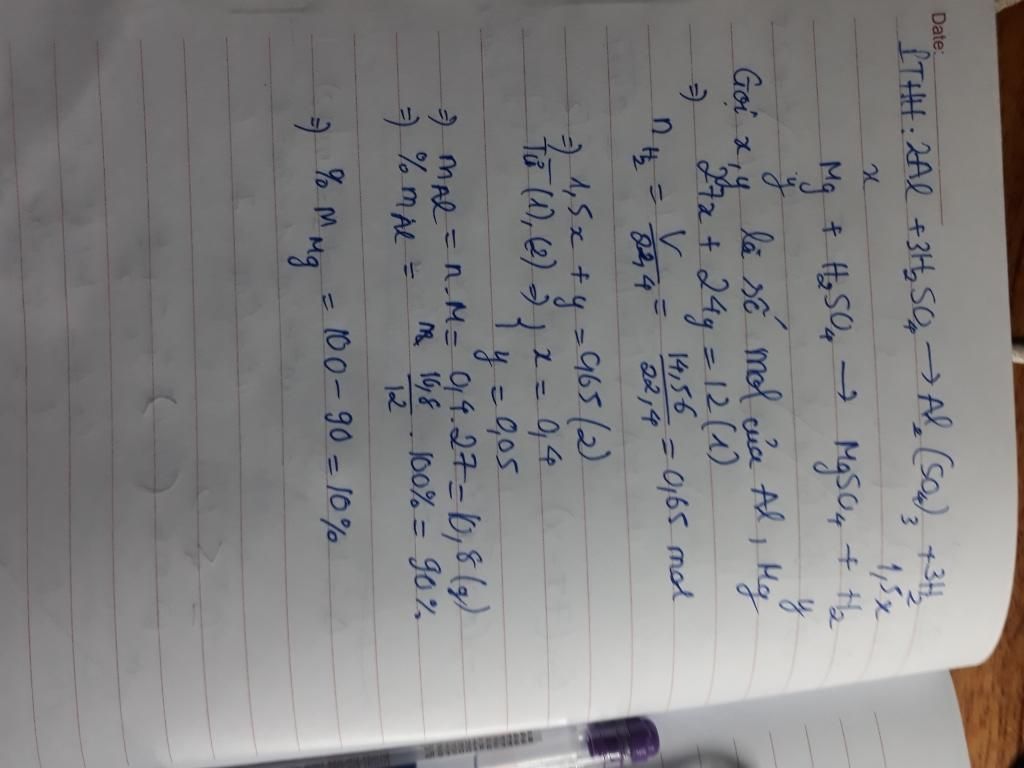 Date:
PTHH: 2Al + 3H₂SO₄ → Al₂(SO₄)₃ + 3H₂
x 1,5x
Mg + H₂SO₄ → MgSO₄ + H₂
y y
Gọi x, y là số mol của Al, Mg
=> 27x + 24y = 12 (1)
n H₂ = V/22,4 = 14,56/22,4 = 0,65 mol
=> 1,5x + y = 0,65 (2)
Từ (1), (2) => { x = 0,4
y = 0,05
=> mAl = n.M = 0,4.27 = 10,8 (g)
=> % mAl = 10,8/12 . 100% = 90%
=> % mMg = 100 - 90 = 10%